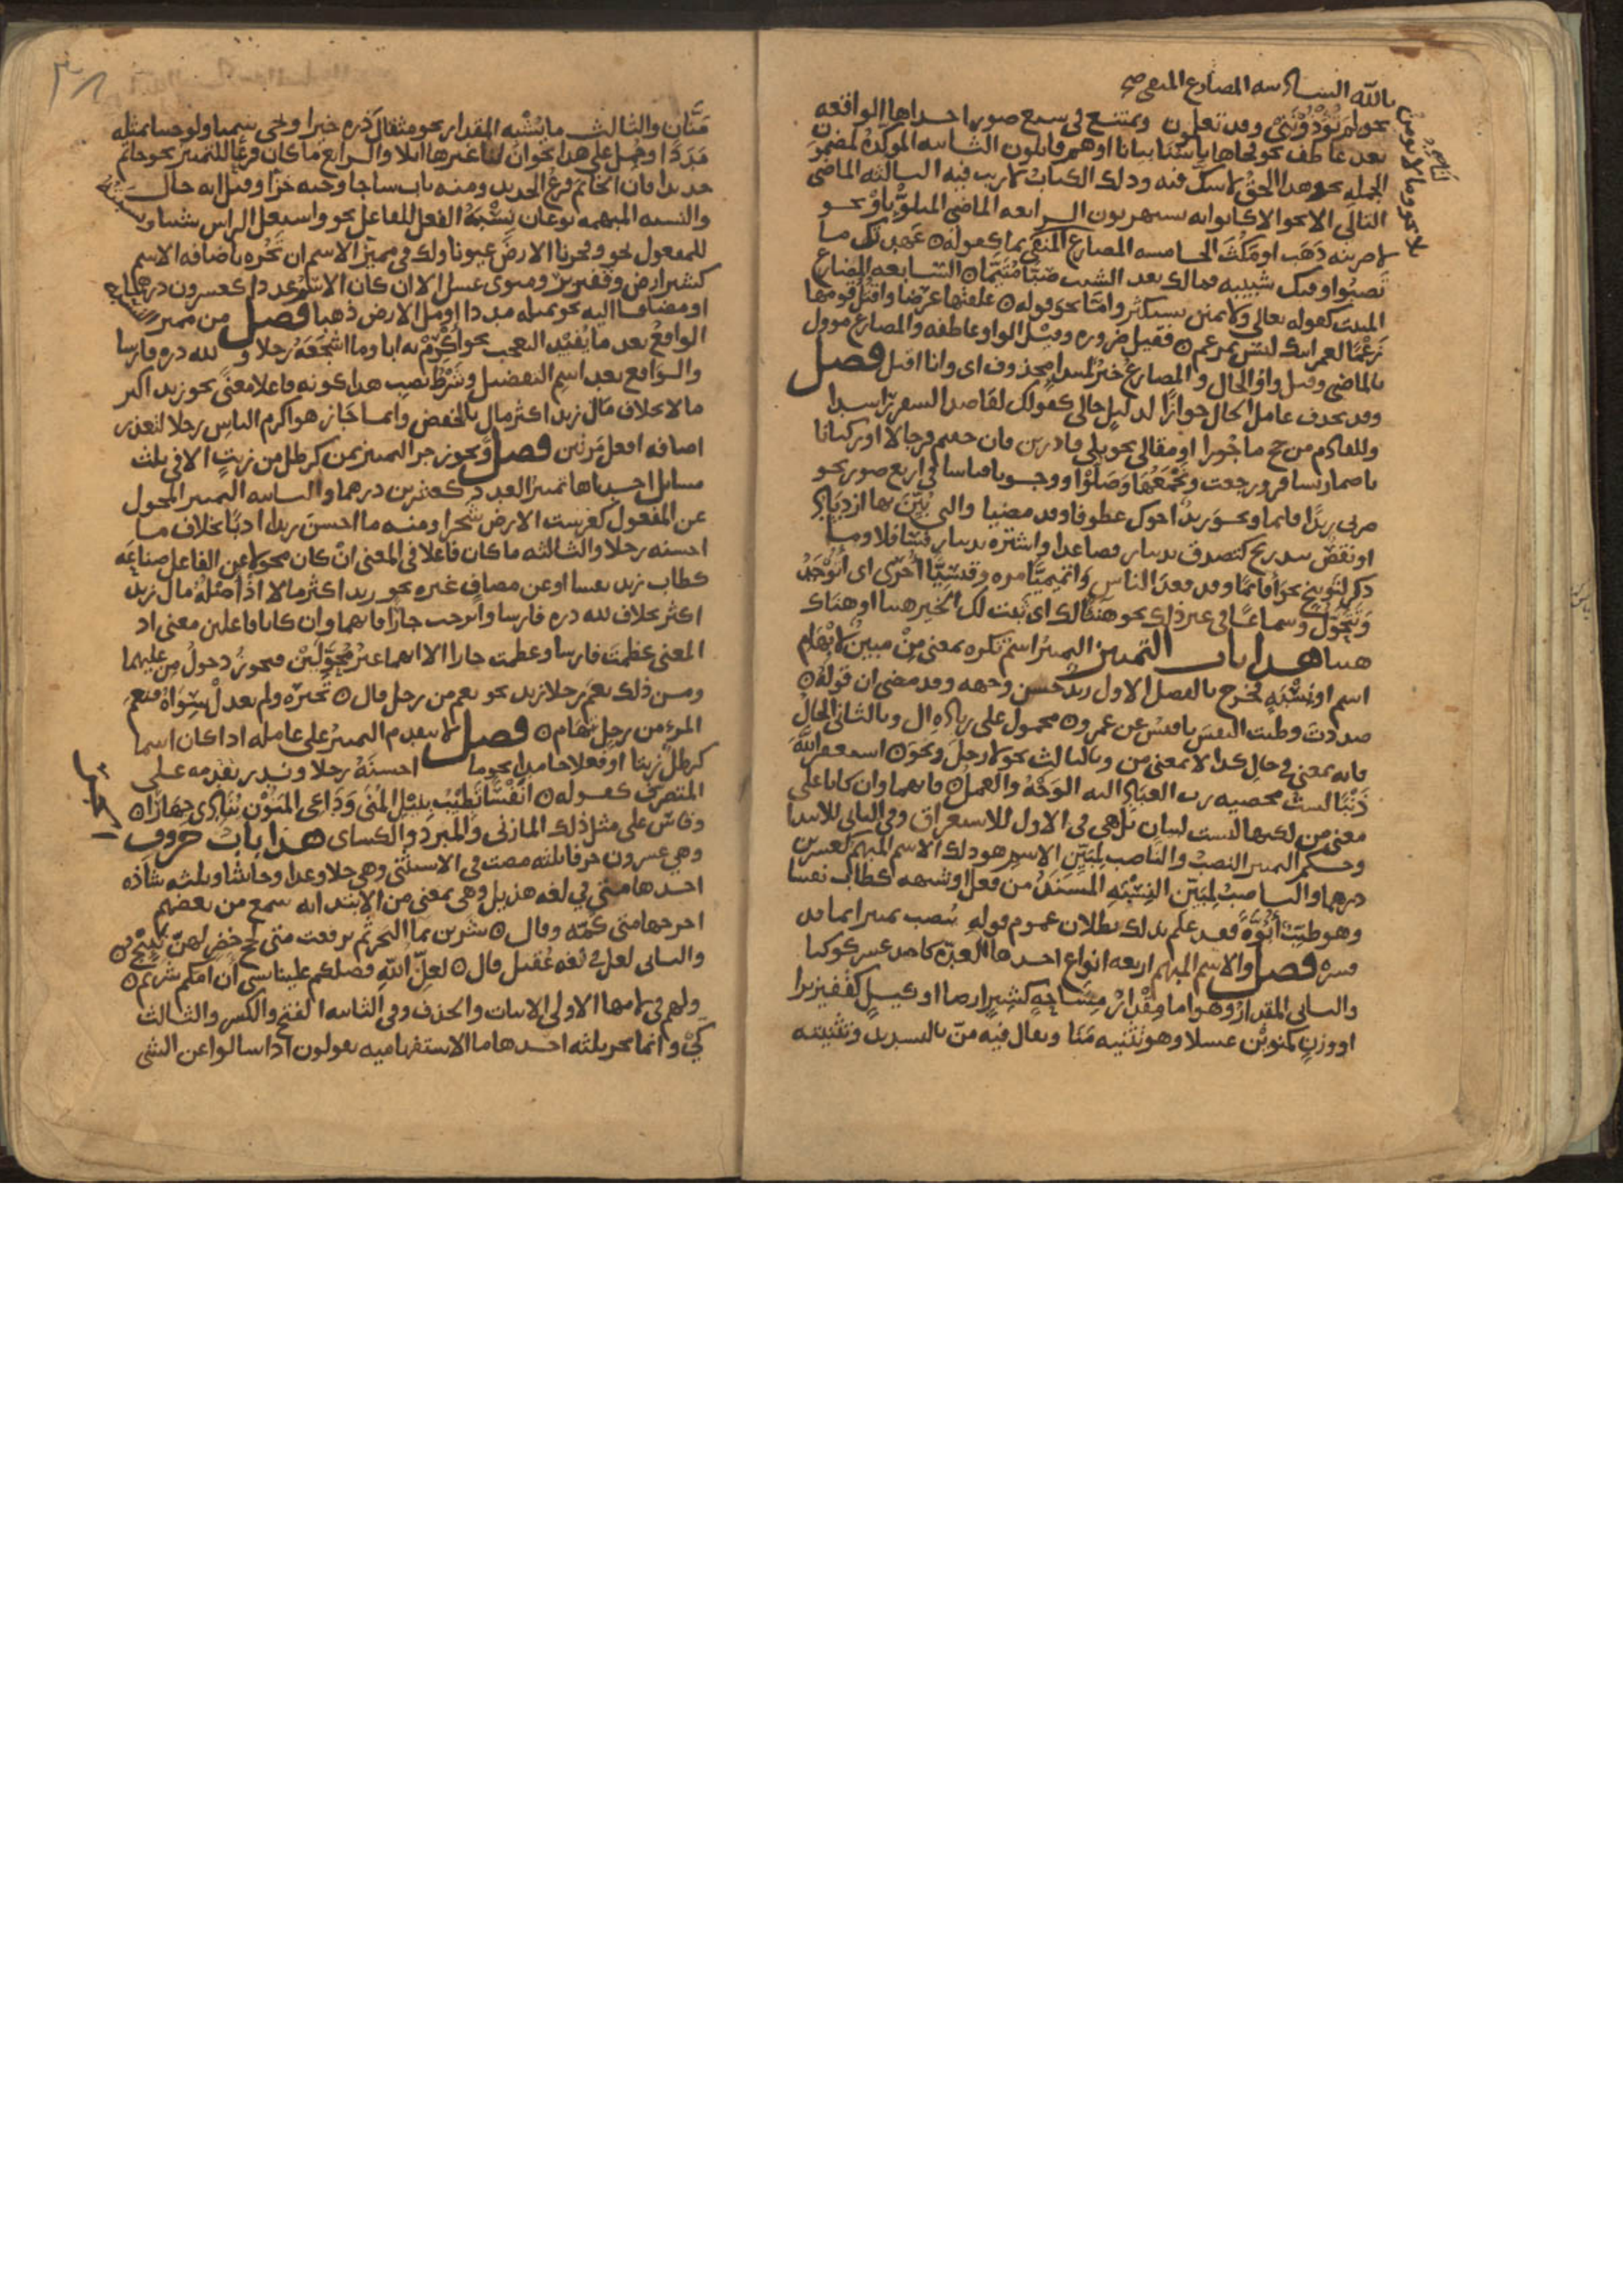 نحو لم تؤذونني وقد تعلمون وتمتنع في سبع صور احداها الواقعه
بعد عاطف نحو فجاها باسنا بياتا او هم قايلون الثانيه الموكده لمضمون
الجمله نحو هو الحق لا شك فيه وذلك الكتاب لا ريب فيه الثالثه الماضي
التالي الا نحو الا كانوا به يستهزون الرابعه الماضي المتلو باو نحو
لاضربنه ذهب او مكث الخامسه المضارع المنفي بما كقوله عهدتك ما
تصبو وفيك شبيبه فمالك بعد الشيب صبا متيما السابعه المضارع
المثبت كقوله تعالى ولا تمنن تستكثر واما نحو قوله علقتها عرضا واقتل قومها
زعما لعمر ابيك ليس بمزعم فقيل ضروره وقيل الواو عاطفه والمضارع موول
بالماضي وقيل واو الحال والمضارع خبر لمبتدا محذوف اي وانا اقتل فصل
وقد يحذف عامل الحال جوازا لدليل حالي كقولك لقاصد السفر راشدا
وللقادم من حج ماجورا او مقالي نحو بلى قادرين فان خفتم فرجالا او ركبانا
باضمار تسافر ورجعت ونجمعها وصلوا ووجوبا قياسا في اربع صور نحو
ضربي زيدا قايما ونحو زيد ابوك عطوفا وقد مضيا والتي يبين بها ازدياد
او نقص بتدريج كتصدق بدينار فصاعدا واشتره بدينار فسافلا وما
ذكر لتوبيخ نحو اقايما وقد قعد الناس واتميميا مره وقيسيا اخرى اي اتوجد
وتتحول وسماعا في غير ذلك نحو هنيا لك اي ثبت لك الخير هنيا او هناك
هنيا هذا باب التمييز التمييز اسم نكره بمعنى من مبين لابهام
اسم او نسبه فخرج بالفصل الاول زيد حسن وجهه وقد مضى ان قوله
صددت وطبت النفس يا قيس عن عمرو محمول على زياده ال وبالثاني الحال
فانه بمعنى في حال كذا لا بمعنى من وبالثالث نحو لا رجل ونحو استغفر الله
ذنبا لست محصيه رب العباد اليه الوجه والعمل فانهما وان كانا على
معنى من لكنها ليست للبيان بل هي في الاول للاستغراق وفي الثاني للابتدا
وحكم التمييز النصب والناصب لمبين الاسم هو ذلك الاسم المبهم كعشرين
درهما والناصب لمبين النسبه المسند من فعل او شبهه كطاب نفسا
وهو طيب ابوه فقد علم بذلك بطلان عموم قوله ينصب تمييزا بما قد
فسره فصل والاسم المبهم اربعه انواع احدها العدد كاحد عشر كوكبا
والثاني المقدار وهو اما مقدار مساحه كشبر ارضا او كيل كقفيز برا
او وزن كمنوين عسلا وهو تثنيه منا ويقال فيه من بالتشديد وتثنيته
بالله السادسه المضارع المنفي
منان والثالث ما يشبه المقدار نحو مثقال ذره خيرا ونحي سمنا ولو جينا بمثله
مددا وحمل على هذا نحو ان لنا غيرها ابلا والرابع ما كان فرعا للتمييز نحو خاتم
حديدا فان الخاتم فرع الحديد ومنه باب ساجا وجبه خزا وقيل انه حال
والنسبه المبهمه نوعان نسبه الفعل للفاعل نحو واشتعل الراس شيبا ونسبته
للمفعول نحو وفجرنا الارض عيونا ولك في مميز الاسم ان تجره باضافه الاسم
كشبر ارض وقفيز بر ومنوي عسل الا ان كان الاسم عددا كعشرين درهما
او مضافا اليه نحو بمثله مددا او مل الارض ذهبا فصل من مميز
الواقع بعد ما يفيد التعجب نحو اكرم به ابا وما اشجعه رجلا ولله دره فارسا
والواقع بعد اسم التفضيل وشرط نصب هذا كونه فاعلا معنى نحو زيد اكثر
مالا بخلاف مال زيد اكثر مال بالخفض وانما جاز هو اكرم الناس رجلا لتعذر
اضافه افعل مرتين فصل ويجوز جر التمييز بمن كرطل من زيت الا في ثلث
مسايل احداها تمييز العدد كعشرين درهما والثانيه التمييز المحول
عن المفعول كغرست الارض شجرا ومنه ما احسن زيدا ادبا بخلاف ما
احسنه رجلا والثالثه ما كان فاعلا في المعنى ان كان محولا عن الفاعل صناعه
كطاب زيد نفسا او عن مضاف غيره نحو زيد اكثر مالا اذ اصله مال زيد
اكثر بخلاف لله دره فارسا وابرحت جارا فانهما وان كانا فاعلين معنى اذ
المعنى عظمت فارسا وعظمت جارا الا انهما غير محولين فيجوز دخول من عليهما
ومن ذلك نعم رجلا زيد نحو نعم من رجل قال تخيره ولم يعدل سواه فنعم
المرء من رجل تهام فصل لا يتقدم التمييز على عامله اذا كان اسما
كرطل زيتا او فعلا جامدا نحو ما احسنه رجلا وندر تقدمه على
المتصرف كقوله انفسا تطيب بنيل المنى وداعي المنون ينادي جهارا
وقاس على مثل ذلك المازني والمبرد والكساي هذا باب حروف
وهي عشرون حرفا ثلثه مضت في الاستثنى وهي خلا وعدا وحاشا وثلثه شاذه
احدها متى في لغه هذيل وهي بمعنى من الابتدائيه سمع من بعضهم
اخرجها متى كمه وقال شربن بما البحر ثم ترفعت متى لجج خضر لهن نيج
والثاني لعل في لغه عقيل قال لعل الله فضلكم علينا بشي ان امكم شريم
ولهم في لامها الاولى الاثبات والحذف وفي الثانيه الفتح والكسر والثالث
كي وانما تجر ثلثه احدها ما الاستفهاميه يقولون اذا سالوا عن الشي
الجر